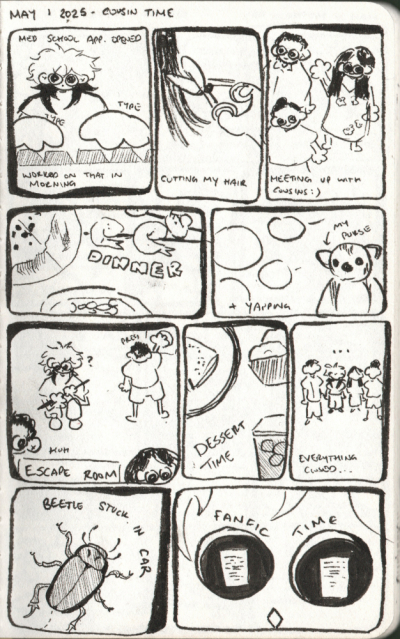 MAY 1 2025 - COUSIN TIME
MED SCHOOL APP. OPENED
TYPE
TYPE
WORKED ON THAT IN
MORNING
CUTTING MY HAIR
MEETING UP WITH
COUSINS:)
DINNER
MY
PURSE
+ YAPPING
?
HUH
ESCAPE ROOM
DESSERT
TIME
...
EVERYTHING
CLOSED...
BEETLE STUCK IN CAR
FANFIC TIME